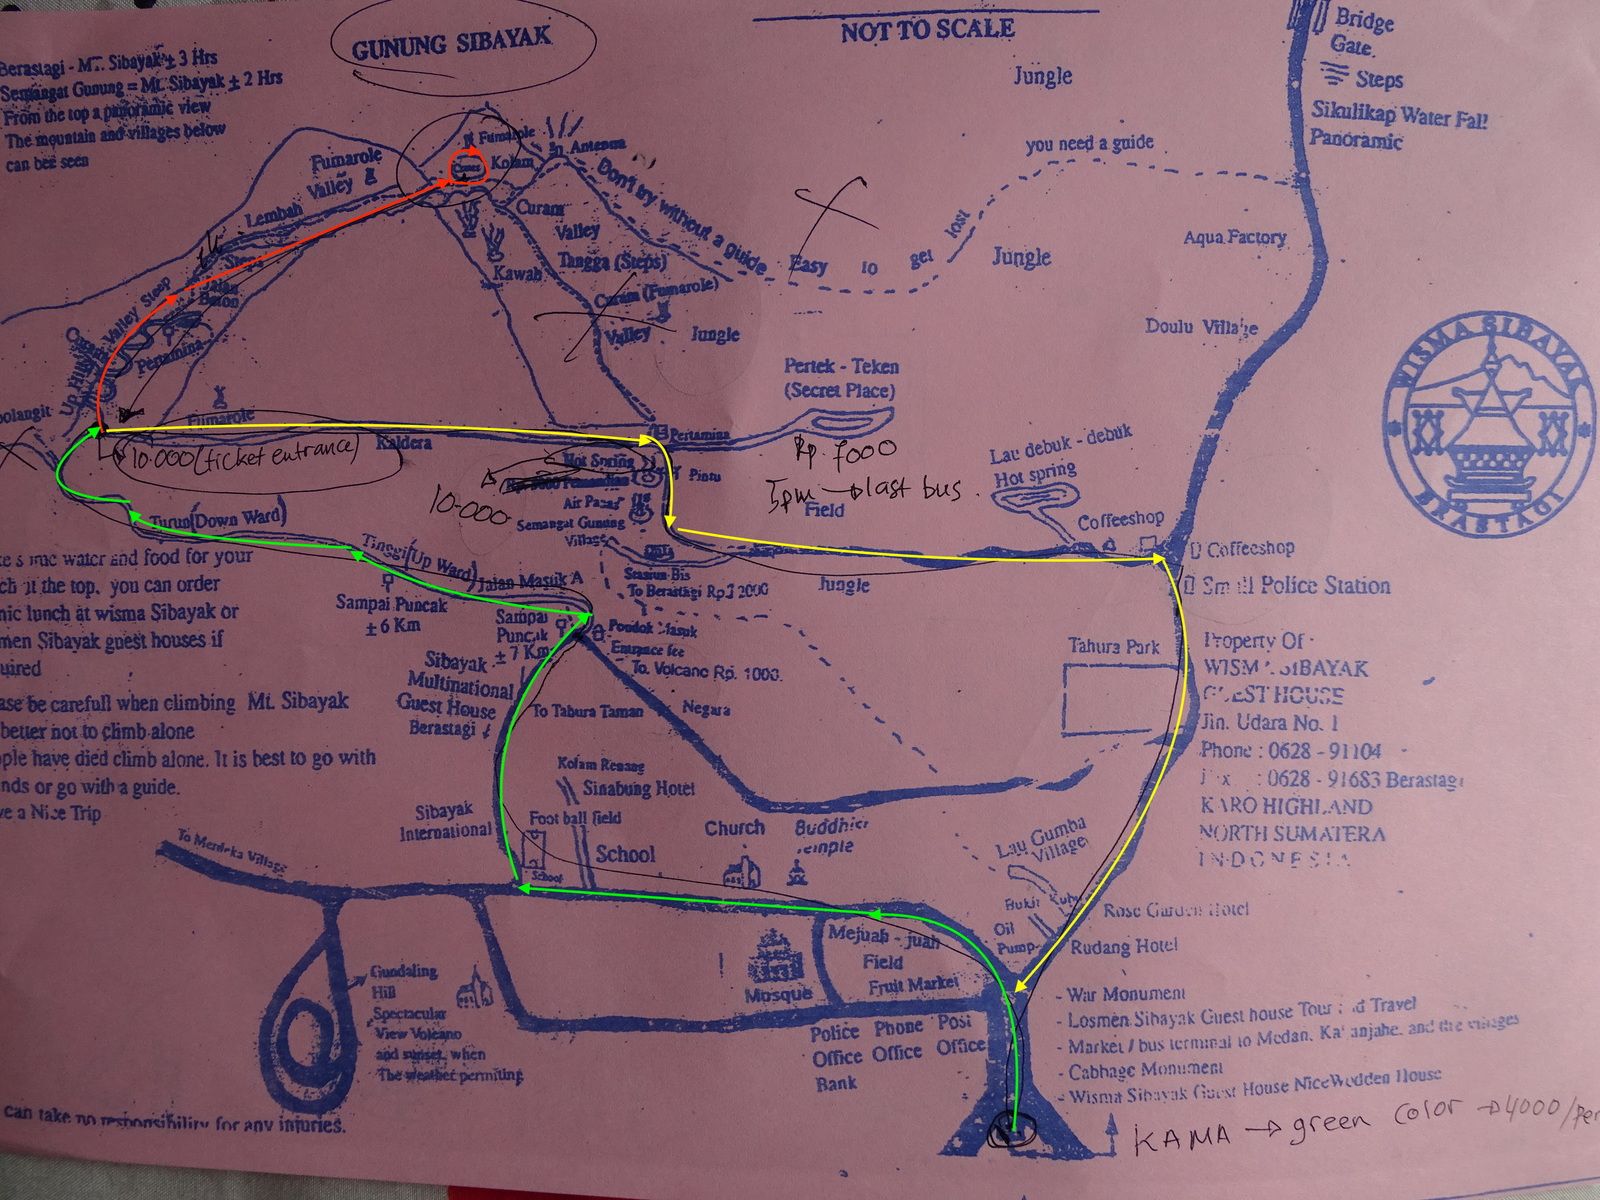 GUNUNG SIBAYAK
NOT TO SCALE
Berastagi - MT. Sibayak ± 3 Hrs
Semangat Gunung = Mt. Sibayak ± 2 Hrs
From the top a panoramic view
The mountain and villages below
can bee seen
Jungle
Bridge
Gate.
Steps
Sikulikap Water Fall
Panoramic
you need a guide
Fumarole
Valley
Fumarole
Kolam
Antenna
Lembah
Don't try without a guide
Easy to get lost
Curam
Valley
Tangga (Steps)
Kawah
Curam (Fumarole)
Valley
Jungle
Jungle
Aqua Factory
Doulu Village
Valley Steep
Steps
Jalan
Beton
Pertamina
Pertek - Teken
(Secret Place)
WISMA SIBAYAK
BERASTAGI
Fumarole
Kaldera
Pertamina
10.000 (ticket entrance)
Hot Spring
Pintu
Air Panas
Semangat Gunung
Village
10.000
Rp. 7000
5pm → last bus
Field
Lau debuk - debuk
Hot spring
Coffeeshop
Coffeeshop
Small Police Station
Turun (Down Ward)
Tinggi (Up Ward)
Jalan Masuk A
Stasiun Bis
To Berastagi Rp. 2000
Jungle
Sampai Puncak
± 6 Km
Sampai
Puncak
± 7 Km
Pondok Masuk
Entrance fee
To Volcano Rp. 1000.
water and food for your
at the top. you can order
lunch at wisma Sibayak or
Sibayak guest houses if
be carefull when climbing Mt. Sibayak
better not to climb alone
have died climb alone. It is best to go with
or go with a guide.
a Nice Trip
Sibayak
Multinational
Guest House
Berastagi
To Tahura Taman
Negara
Tahura Park
Property Of :
WISMA SIBAYAK
GUEST HOUSE
Jln. Udara No. 1
Phone : 0628 - 91104
Fax : 0628 - 91683 Berastagi
KARO HIGHLAND
NORTH SUMATERA
INDONESIA
Kolam Renang
Sinabung Hotel
Sibayak
International
Foot ball field
School
School
Church
Buddhist
Temple
Lau Gumba
Village
To Merdeka Village
Bukit Kubu
Oil
Pump
Rose Garden Hotel
Rudang Hotel
Gundaling
Hill
Spectacular
View Volcano
and sunset, when
The weather permiting
Mosque
Mejuah - juah
Field
Fruit Market
Police Phone Post
Office Office Office
Bank
- War Monument
- Losmen Sibayak Guest house Tour and Travel
- Market / bus terminal to Medan, Kabanjahe, and the villages
- Cabbage Monument
- Wisma Sibayak Guest House Nice Wodden House
can take no responsibility for any injuries.
KAMA → green color → 4000/